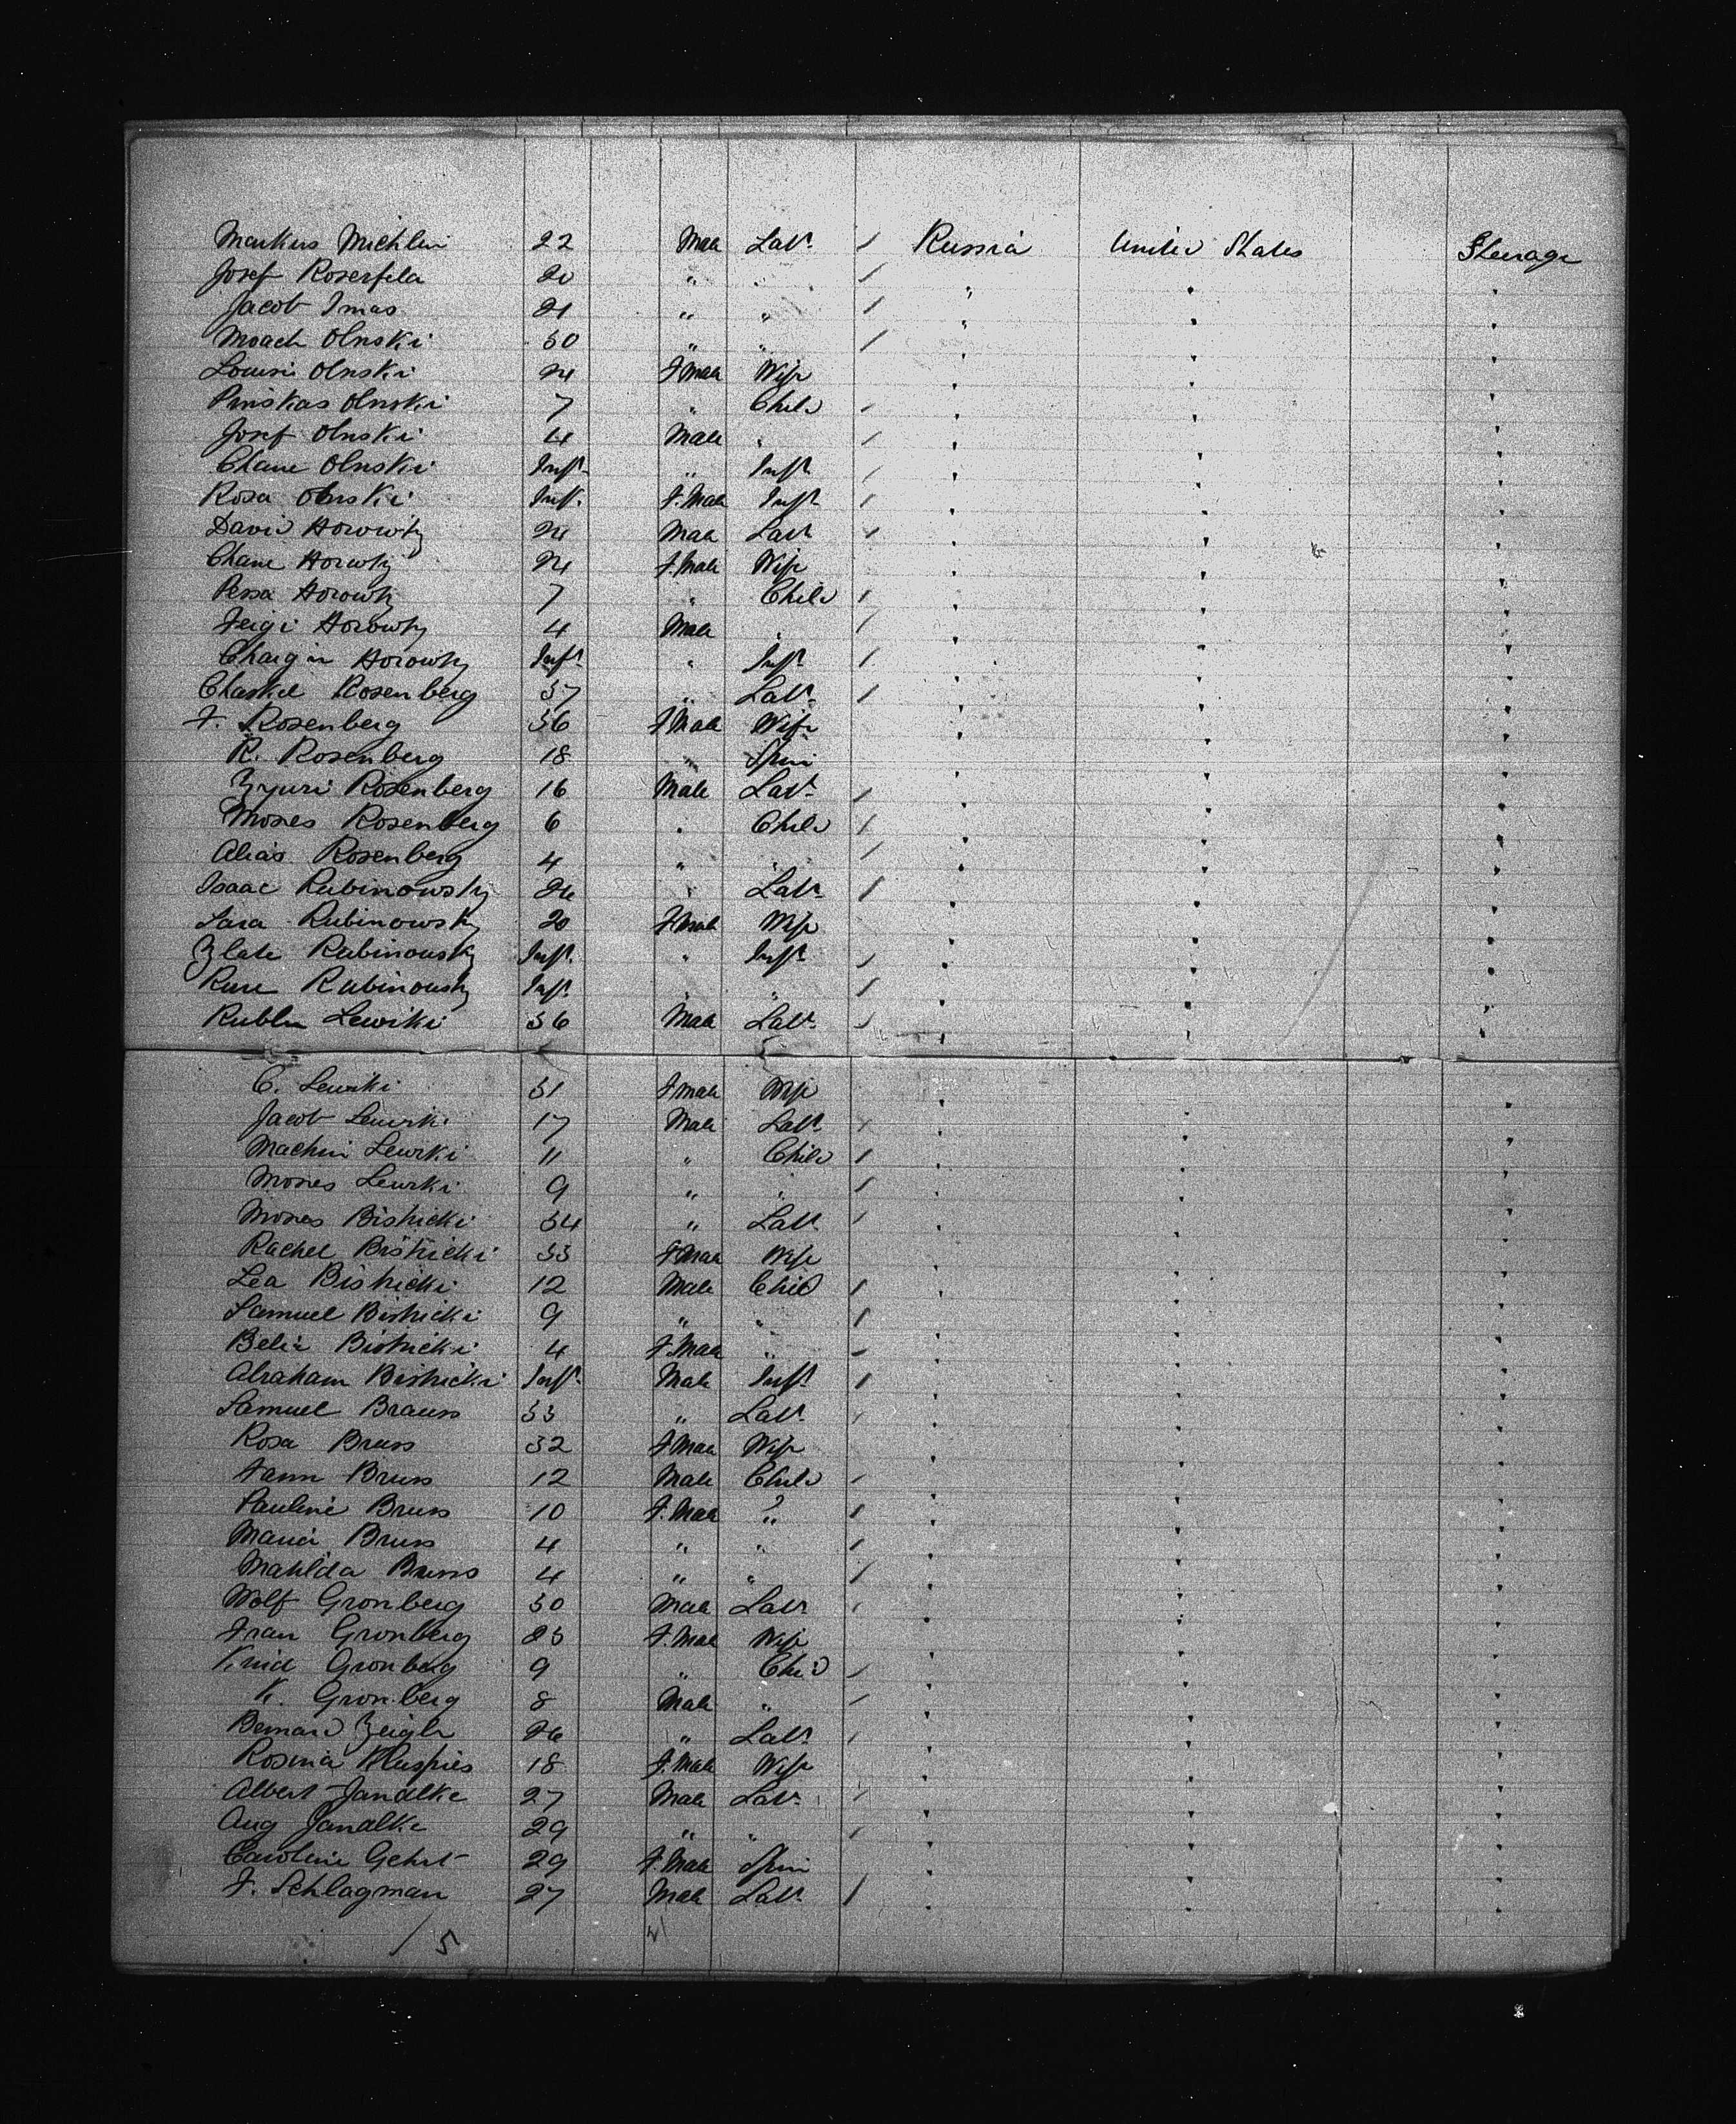 Markus Michlin 22 Male Labr / Russia United States Steerage
Josef Rosenfeld 20 " " /
Jacob Imas 21 " " /
Moach Olnski 30 " " /
Louise Olnski 24 F Male Wife
Pinskas Olnski 7 " Child /
Josef Olnski 4 Male " /
Chane Olnski Inft " Inft /
Rosa Olnski Inft F. Male Inft /
David Horowitz 24 Male Labr /
Chane Horowitz 24 F. Male Wife
Pessa Horowitz 7 " Child /
Feigi Horowitz 4 Male " /
Horowitz Inft " Inft /
Chaskel Rosenberg 37 " Labr /
F. Rosenberg 36 F Male Wife
R. Rosenberg 18 " Spin
Rosenberg 16 Male Labr /
Moses Rosenberg 6 " Child /
Alias Rosenberg 4 " " /
Isaac Rubinowsky 24 " Labr /
Sara Rubinowsky 20 F Male Wife
Zlate Rubinowsky Inft " Inft /
Rubinowsky Inft " " /
Lewski 36 Male Labr /
C. Lewski 31 F Male Wife
Jacob Lewski 17 Male Labr /
Machin Lewski 11 " Child /
Moses Lewski 9 " " /
Moses Bistricki 34 " Labr /
Rachel Bistricki 33 F Male Wife
Lea Bistricki 12 Male Child /
Samuel Bistricki 9 " " /
Belie Bistricki 4 F. Male " /
Abraham Bistricki Inft Male Inft /
Samuel Brauss 33 " Labr /
Rosa Bruss 32 F Male Wife
Bruss 12 Male Child /
Pauline Bruss 10 F. Male " /
Maria Bruss 4 " " /
Mathilda Bruss 4 " " /
Wolf Gronberg 30 Male Labr /
Gronberg 23 F. Male Wife
Gronberg 9 " Child /
K. Gronberg 8 Male " /
Bernard Zeigler 26 " Labr /
Rosina 18 F. Male Wife
Albert Jandlke 27 Male Labr /
Aug Jandlke 29 " " /
Caroline Gehrt 29 F. Male Spin
F. Schlagman 27 Male Labr /
/ 5